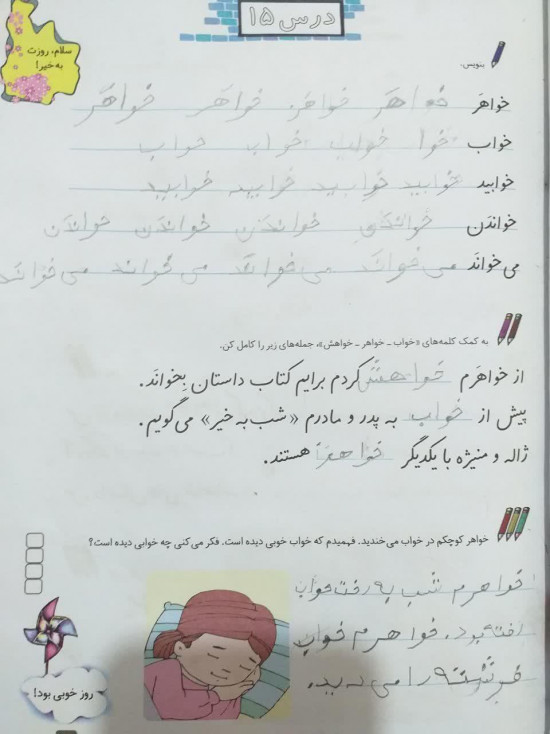 درس ۱۵
سلام، روزت
به خیر!
بنویس.
خواهَر خواهَر خواهَر خواهَر خواهَر
خواب خوا خواب خواب خواب
خوابید خوابید خوابید خوابید خوابید
خواندَن خواندَن خواندَن خواندَن خواندَن
می‌خوانَد می‌خوانَد می‌خوانَد می‌خوانَد می‌خوانَد
به کمک کلمه‌های «خواب ـ خواهر ـ خواهش»، جمله‌های زیر را کامل کن.
از خواهَرم خواهش کردم برایم کتاب داستان بِخوانَد.
پیش از خواب به پدر و مادرم «شب به خیر» می‌گویم.
ژاله و منیژه با یکدیگر خواهر هستند.
خواهر کوچکم در خواب می‌خندید. فهمیدم که خواب خوبی دیده است. فکر می‌کنی چه خوابی دیده است؟
خواهرم شب به رفت خواب
رفته بود. خواهرم خواب
فرشته را می‌دید.
روز خوبی بود!